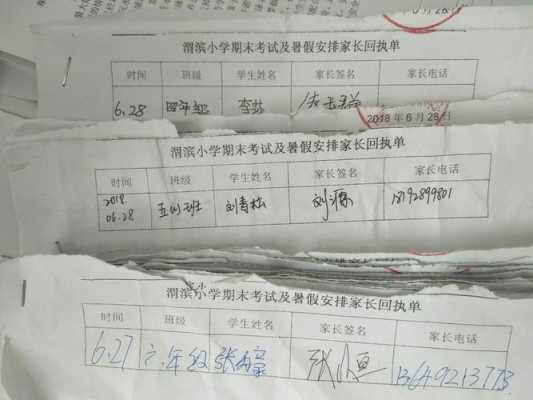 渭滨小学期末考试及暑假安排家长回执单
时间 班级 学生姓名 家长签名 家长电话
6.28 四年级
2018年6月28日
渭滨小学期末考试及暑假安排家长回执单
时间 班级 学生姓名 家长签名 家长电话
2018.06.28 五(1)班 刘青松 刘源 18192899801
渭滨小学期末考试及暑假安排家长回执单
时间 班级 学生姓名 家长签名 家长电话
6.27 六年级 张 张恒 13649213773